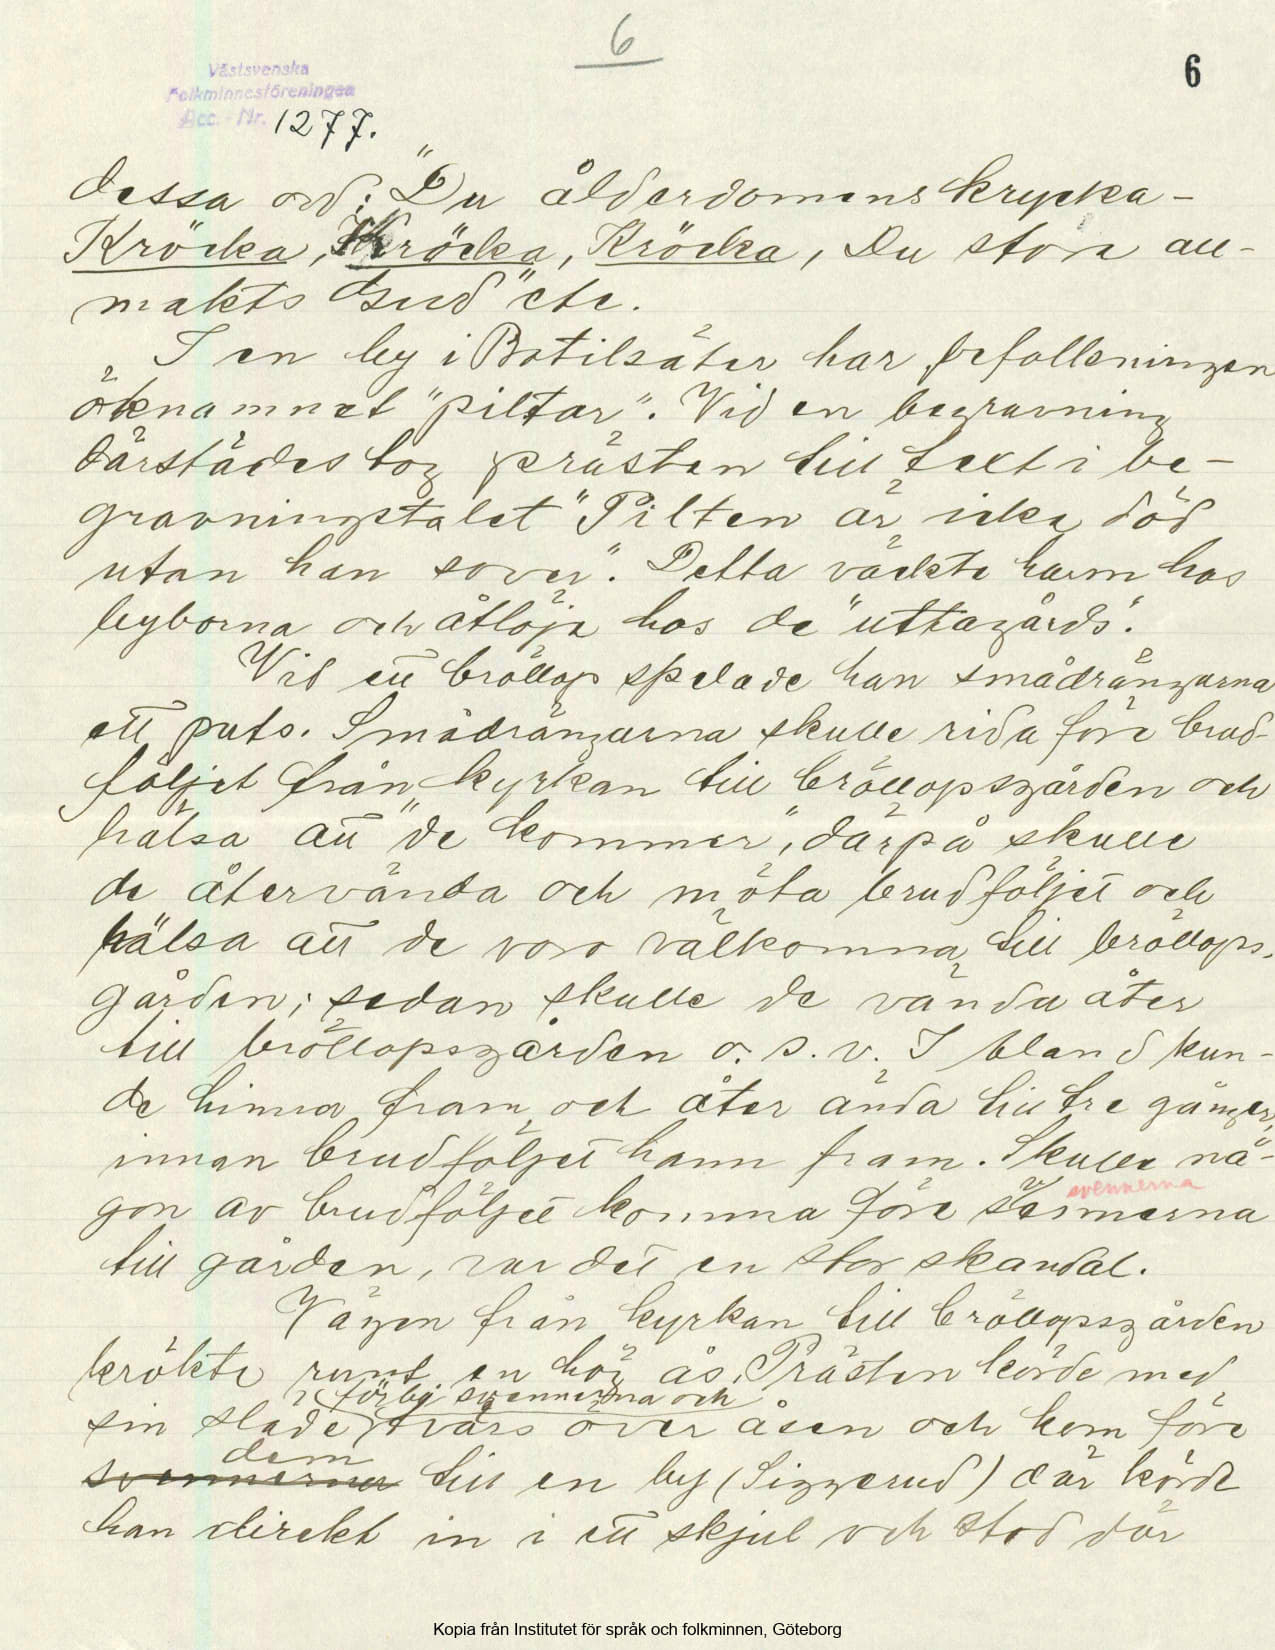 6
6
Västsvenska
Folkminnesföreningen
Acc. Nr. 1277.
dessa ord: "Du ålderdomens krycka -
Kröcka, Kröcka, Kröcka, Du store all-
makts Gud" etc.
I en by i Botilsäter har befolkningen
öknamnet "piltar". Vid en begravning
därstädes tog prästen till text i be-
gravningstalet "Pilten är icke död
utan han sover". Detta väckte harm hos
byborna och åtlöje hos de "uttagårds".
Vid ett bröllop spelade han smådrängarna
ett puts. Smådrängarna skulle rida före brud-
följet från kyrkan till bröllopsgården och
hälsa att "de kommer", därpå skulle
de återvända och möta brudföljet och
hälsa att de voro välkomna till bröllops-
gården; sedan skulle de vända åter
till bröllopsgården o. s. v. I bland kun-
de hinna fram och åter ända till tre gånger,
innan brudföljet hann fram. Skulle nå-
svennerna
gon av brudföljet komma före
till gården, var det en stor skandal.
Vägen från kyrkan till bröllopsgården
krökte runt en hög ås. Prästen körde med
förbi svennerna och
sin släde tvärs över åsen och kom före
dem
svennerna till en by (Siggerud) där körde
han direkt in i ett skjul och stod där
Kopia från Institutet för språk och folkminnen, Göteborg